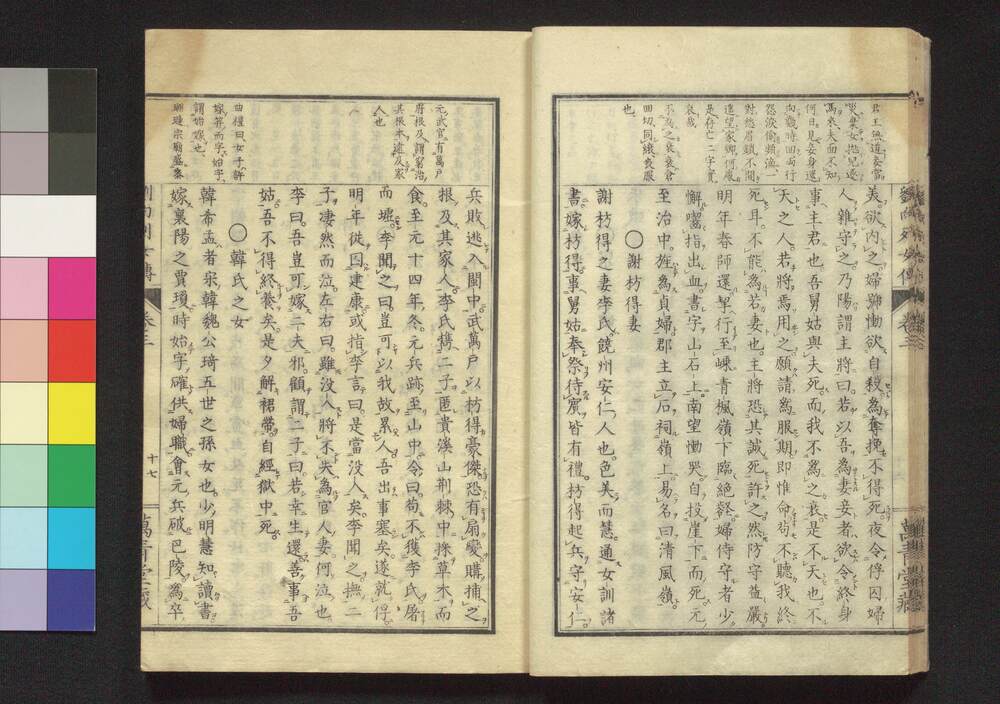 君王無道妾當
災棄女抛兒逐
馬來夫面不知
何日見妾身還
向幾時回兩行
怨淚偷頻滴一
對愁眉鎖不開
遙望家鄉何處
是存亡二字實
哀哉
回切同織喪服
也
美欲内之婦號慟欲自殺爲奪挽不得死夜令俘囚婦
人雜守之乃陽謂主將曰若以吾爲妻妾者欲令終身
事主君也吾舅姑與夫死而我不爲之衰是不天也不
天之人若將焉用之願請爲服期即惟命苟不聽我終
死耳不能爲若妻也主將恐其誠死許之然防守益嚴
明年春師還挈行至嵊青楓嶺下臨絶壑婦侍守者少
懈囓指出血書字山石上南望慟哭自投崖下而死元
至治中旌爲貞婦郡主立石祠嶺上易名曰清風嶺
〇謝枋得妻
謝枋得之妻李氏饒州安仁人也色美而慧通女訓諸
書嫁枋得事舅姑奉祭待賓皆有禮枋得起兵守安仁
卷三
元武官有萬戶
府根及謂窮治
其根本逮及家
人也
曲禮曰女子許
嫁筓而字始字
謂始嫁也
兵敗逃入閩中武萬戶以枋得豪傑恐有扇變購捕之
根及其家人李氏攜二子匿貴溪山荆棘中採草木而
食至元十四年冬元兵跡至山中令曰苟不獲李氏屠
而墟李聞之曰豈可以我故累人吾出事塞矣遂就俘
明年徙囚建康或指李言曰是當没入矣李聞之撫二
子凄然而泣左右曰雖没入將不失爲官人妻何泣也
李曰吾豈可嫁二夫邪顧謂二子曰若幸生還善事吾
姑吾不得終養矣是夕解裙帶自經獄中死
〇韓氏之女
韓希孟者宋韓魏公琦五世之孫女也少明慧知讀書
嫁襄陽之賈瓊時始字確供婦職會元兵破巴陵爲卒
卷三
十七
萬青堂藏